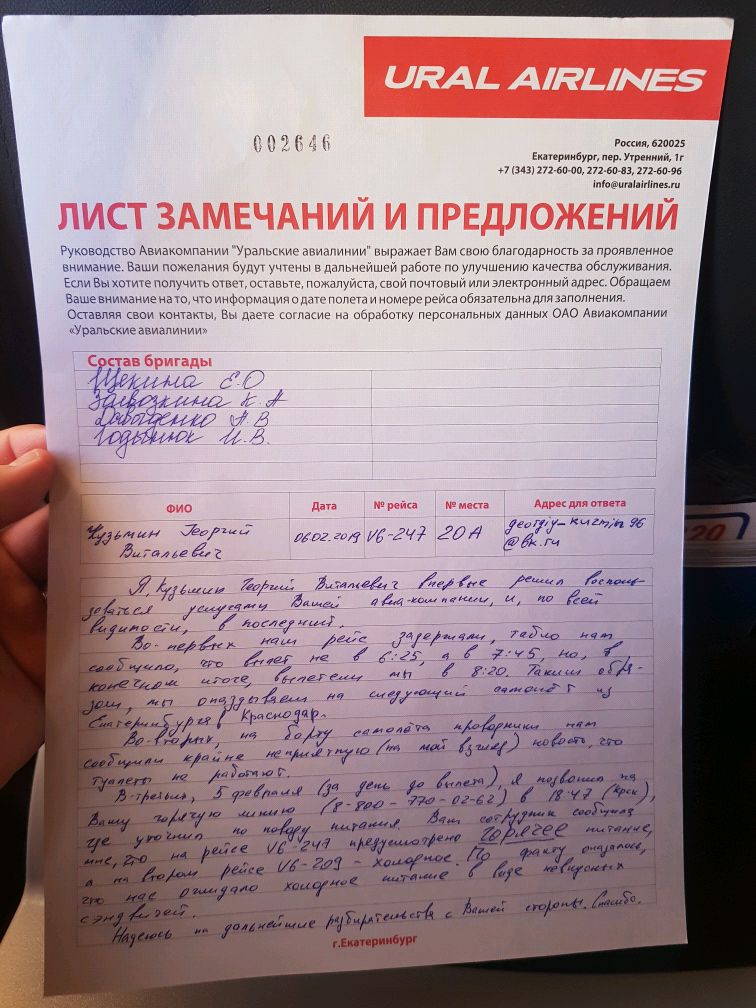 URAL AIRLINES
002646
Россия, 620025
Екатеринбург, пер. Утренний, 1г
+7 (343) 272-60-00, 272-60-83, 272-60-96
info@uralairlines.ru
ЛИСТ ЗАМЕЧАНИЙ И ПРЕДЛОЖЕНИЙ
Руководство Авиакомпании "Уральские авиалинии" выражает Вам свою благодарность за проявленное
внимание. Ваши пожелания будут учтены в дальнейшей работе по улучшению качества обслуживания.
Если Вы хотите получить ответ, оставьте, пожалуйста, свой почтовый или электронный адрес. Обращаем
Ваше внимание на то, что информация о дате полета и номере рейса обязательна для заполнения.
Оставляя свои контакты, Вы даете согласие на обработку персональных данных ОАО Авиакомпании
«Уральские авиалинии»
Состав бригады
Щекина Е.О
Завозкина К.А
Давыденко А.В
Годынюк И.В.
ФИО Дата № рейса № места Адрес для ответа
Кузьмин Георгий 06.02.2019 V6-247 20А georgiy_kuzmin96
Витальевич @bk.ru
Я, Кузьмин Георгий Витальевич впервые решил восполь-
зоваться услугами Вашей авиа-компании, и, по всей
видимости, в последний.
Во-первых наш рейс задержали, табло нам
сообщило, что вылет не в 6:25, а в 7:45, но, в
конечном итоге, вылетели мы в 8:20. Таким обра-
зом, мы опаздываем на следующий самолёт из
Екатеринбурга в Краснодар.
Во-вторых, на борту самолёта проводники нам
сообщили крайне неприятную (на мой взгляд) новость, что
туалеты не работают.
В-третьих, 5 февраля (за день до вылета), я позвонил на
Вашу горячую линию (8-800-770-02-62) в 18:47 (Крск),
где уточнил по поводу питания. Ваш сотрудник сообщил
мне, что на рейсе V6-247 предусмотрено горячее питание,
а на втором рейсе V6-209 - холодное. По факту оказалось,
что нас ожидало холодное питание в виде невкусных
сэндвичей.
Надеюсь на дальнейшие разбирательства с Вашей стороны. Спасибо.
г.Екатеринбург
20